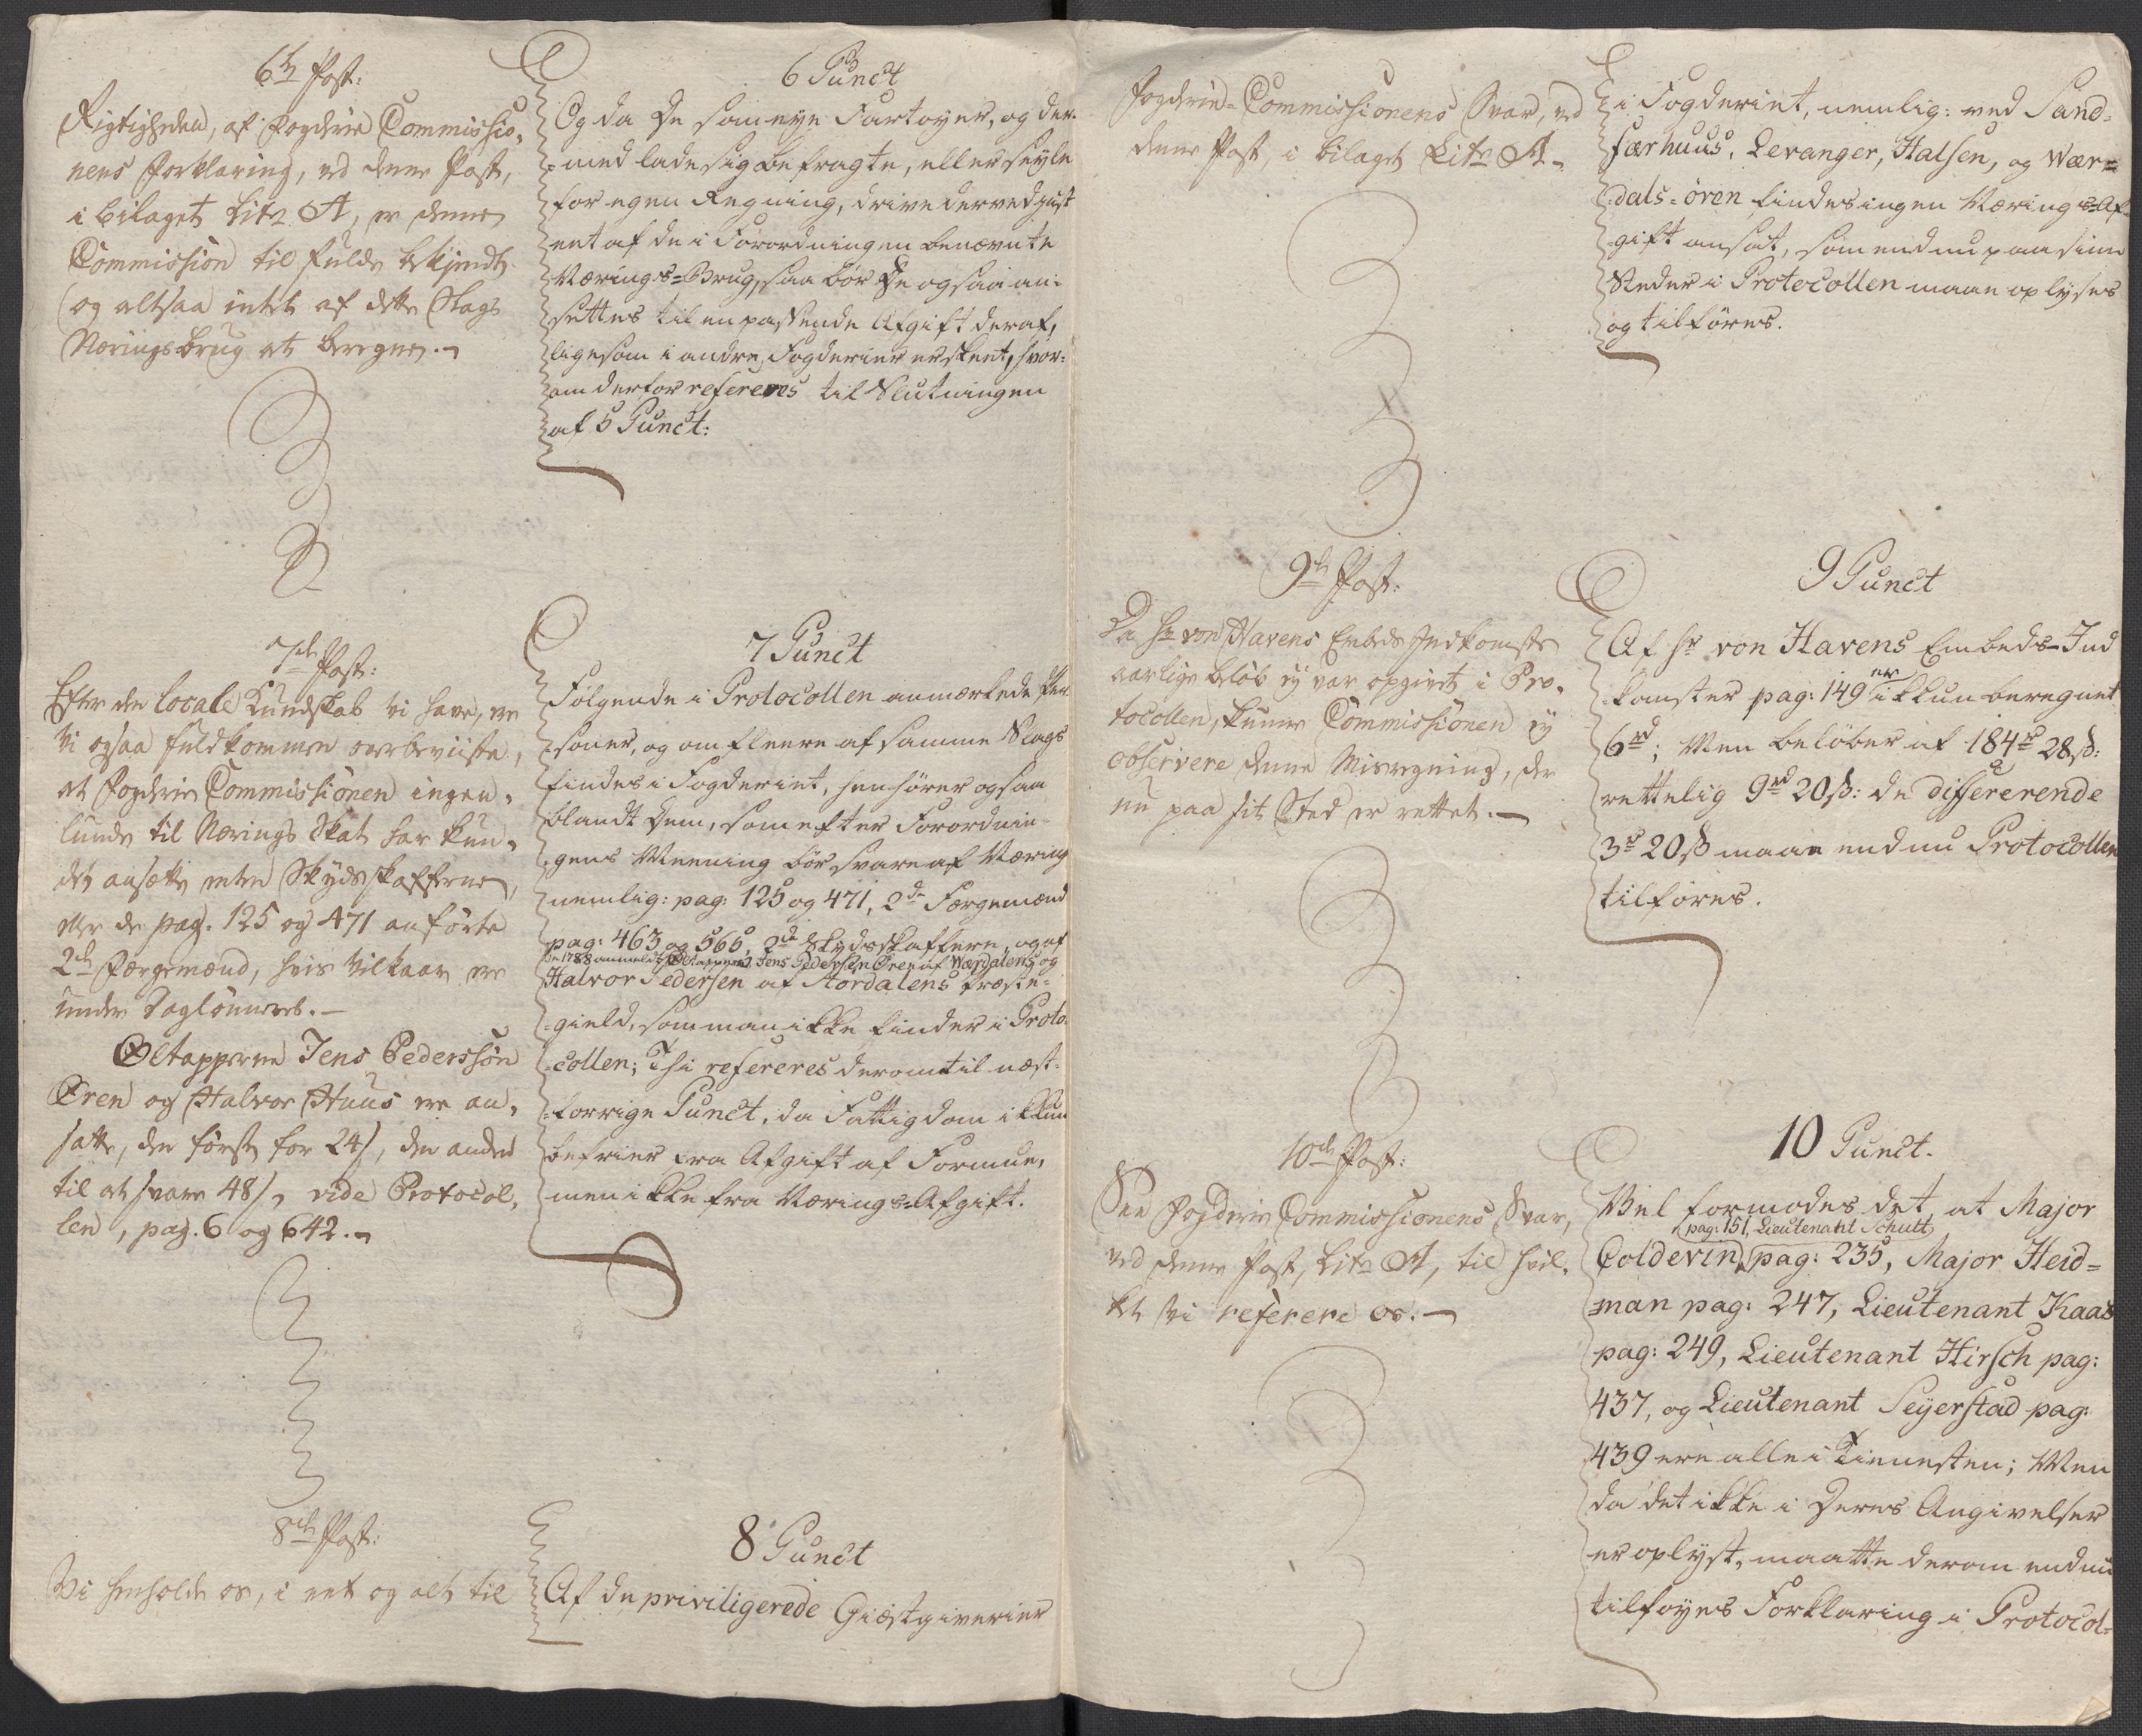 6te Post:
Rigtigheden, af Fogderie Commissio,
nens Forklaring, ved denne Post,
i bilaget Litr A, er denne
Commission til fulde bekjendt
og altsaa intet af dette Slags
Næringsbrug at beregne.
7de Post:
Efter den locale Kundskab vi have, ere
vi ogsaa fuldkommen overbeviiste,
at Fogderie Commissionen ingen,
lunde til Nærings Skat har kun,
det ansætte enten Skydsskafferne,
eller de pag. 125 og 471 anførte
2de Færgemænd, hvis Vilkaar ere
under Daglønneres.
Øltapperne Jens Pedersøn
Ören og Halvor Huus ere an,
satte, den første for 24 s, den anden
til at svare 48 s, vide Protocol,
len, pag. 6 og 642.
8de Post:
Vi henholde os, i eet og alt til
6 Punct
Og da De som eye Fartøyer, og der-
med lade sig befragte, eller seyle
for egen Regning, drive derved just
eet af de i Forordningen benævnte
Nærings-Brug, saa bör De ogsaa an-
settes til en passende Afgift deraf,
ligesom i andre Fogderier er skeet, hvor-
om derfor refereres til Slutningen
af 5 Punct:
7 Punct
Følgende i Protocollen anmærkede Per-
soner, og om fleere af samme Slags
findes i Fogderiet, henhører ogsaa
blandt Dem, som efter Forordnin-
gens Meening bör svare af Næring
nemlig: pag: 125 og 471, 2de Færgemænd
pag: 463 og 565, 2de Skydsskaffere, og af
de 1788 anmeldte Øltappere Jens Pedersen Ören af Wærdalens og
Halvor Pedersen af Stordalens Præste-
gield, som man ikke finder i Proto-
collen; Thi refereres derom til næst-
forrige Punct, da Fattigdom ikkun
befrier fra Afgift af Formue,
men ikke fra Nærings-Afgift.
8 Punct
Af de priviligerede Giæstgiverier
Fogderie-Commissionens Svar, ved
denne Post, i bilaget Litr A.
9de Post:
Da Hr von Havens Embeds Indkomster
aarlige beløb ey var opgivet i Pro,
tocollen, kunne Commissionen ey
observere denne Misregning, der
nu paa sit Sted er rettet.
10de Post:
See Fogderie Commissionens Svar,
ved denne Post, Litr A, til hvil,
ket vi referere os.
i Fogderiet, nemlig: ved Sand-
færhuus, Levanger, Halsen, og Wær-
dals-ören findes ingen Nærings-Af-
gift ansat, som endnu paa sine
Steder i Protocollen maae oplyses
og tilføres.
9 Punct
Af Hr von Havens Embeds-Ind
komster pag: 149 er ikkun beregnet
6 rd; Men beløber af 184 rd 28 s:
rettelig 9 rd 20 s: de differerende
3 r 20 s maae endnu Protocollen
tilføres.
10 Punct.
Vel formodes det, at Major
pag: 151, Lieutenant Schult
Coldevin pag: 235, Major Heid-
man pag: 247, Lieutenant Kaas
pag: 249, Lieutenant Hirsch pag:
437, og Lieutenant Seyerstad pag:
439 ere alle i Tienesten; Men
da det ikke i Deres Angivelser
er oplyst, maatte derom endnu
tilføyes Forklaring i Protocol-